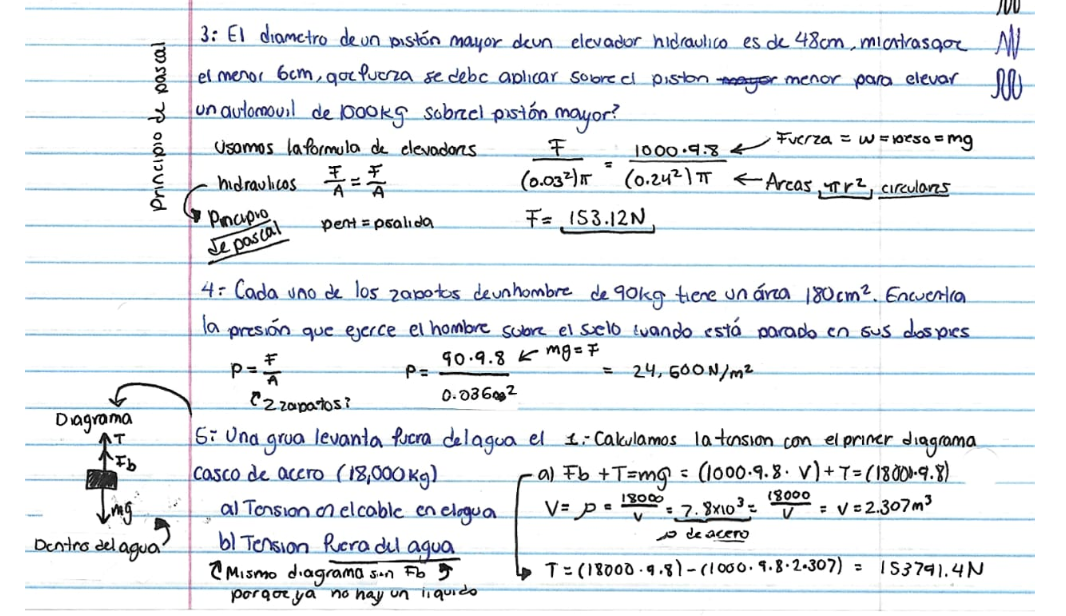 Principio de pascal
3: El diametro de un pistón mayor deun elevador hidraulico es de 48cm, mientrasque
el menor 6cm, que fuerza se debe aplicar sobre el piston mayor menor para elevar
un automovil de 1000kg sobreel pistón mayor?
Usamos la formula de elevadores
hidraulicos F/A = F/A
Principio de pascal
pent = psalida
F/(0.03²)π = 1000·9.8/(0.24²)π
← Fuerza = w = peso = mg
← Areas, πr², circulares
F = 153.12N
4: Cada uno de los zapatos deunhombre de 90kg tiene un área 180cm². Encuentra
la presión que ejerce el hombre sobre el suelo cuando está parado en sus dos pies
P = F/A
2 zapatos?
P = 90·9.8/0.036m² = 24,500N/m²
← mg = F
Diagrama
T
Fb
mg
Dentro del agua
5: Una grua levanta fuera delagua el
casco de acero (18,000kg)
a) Tension en elcable en elagua
b) Tension fuera del agua
Mismo diagrama sin Fb
porque ya no hay un liquido
1.- Calculamos la tension con el primer diagrama
a) Fb + T = mg = (1000·9.8·V) + T = (18000·9.8)
V = ρ = 18000/V = 7.8x10³ = 18000/V = V = 2.307m³
ρ de acero
T = (18000·9.8) - (1000·9.8·2.307) = 153791.4N